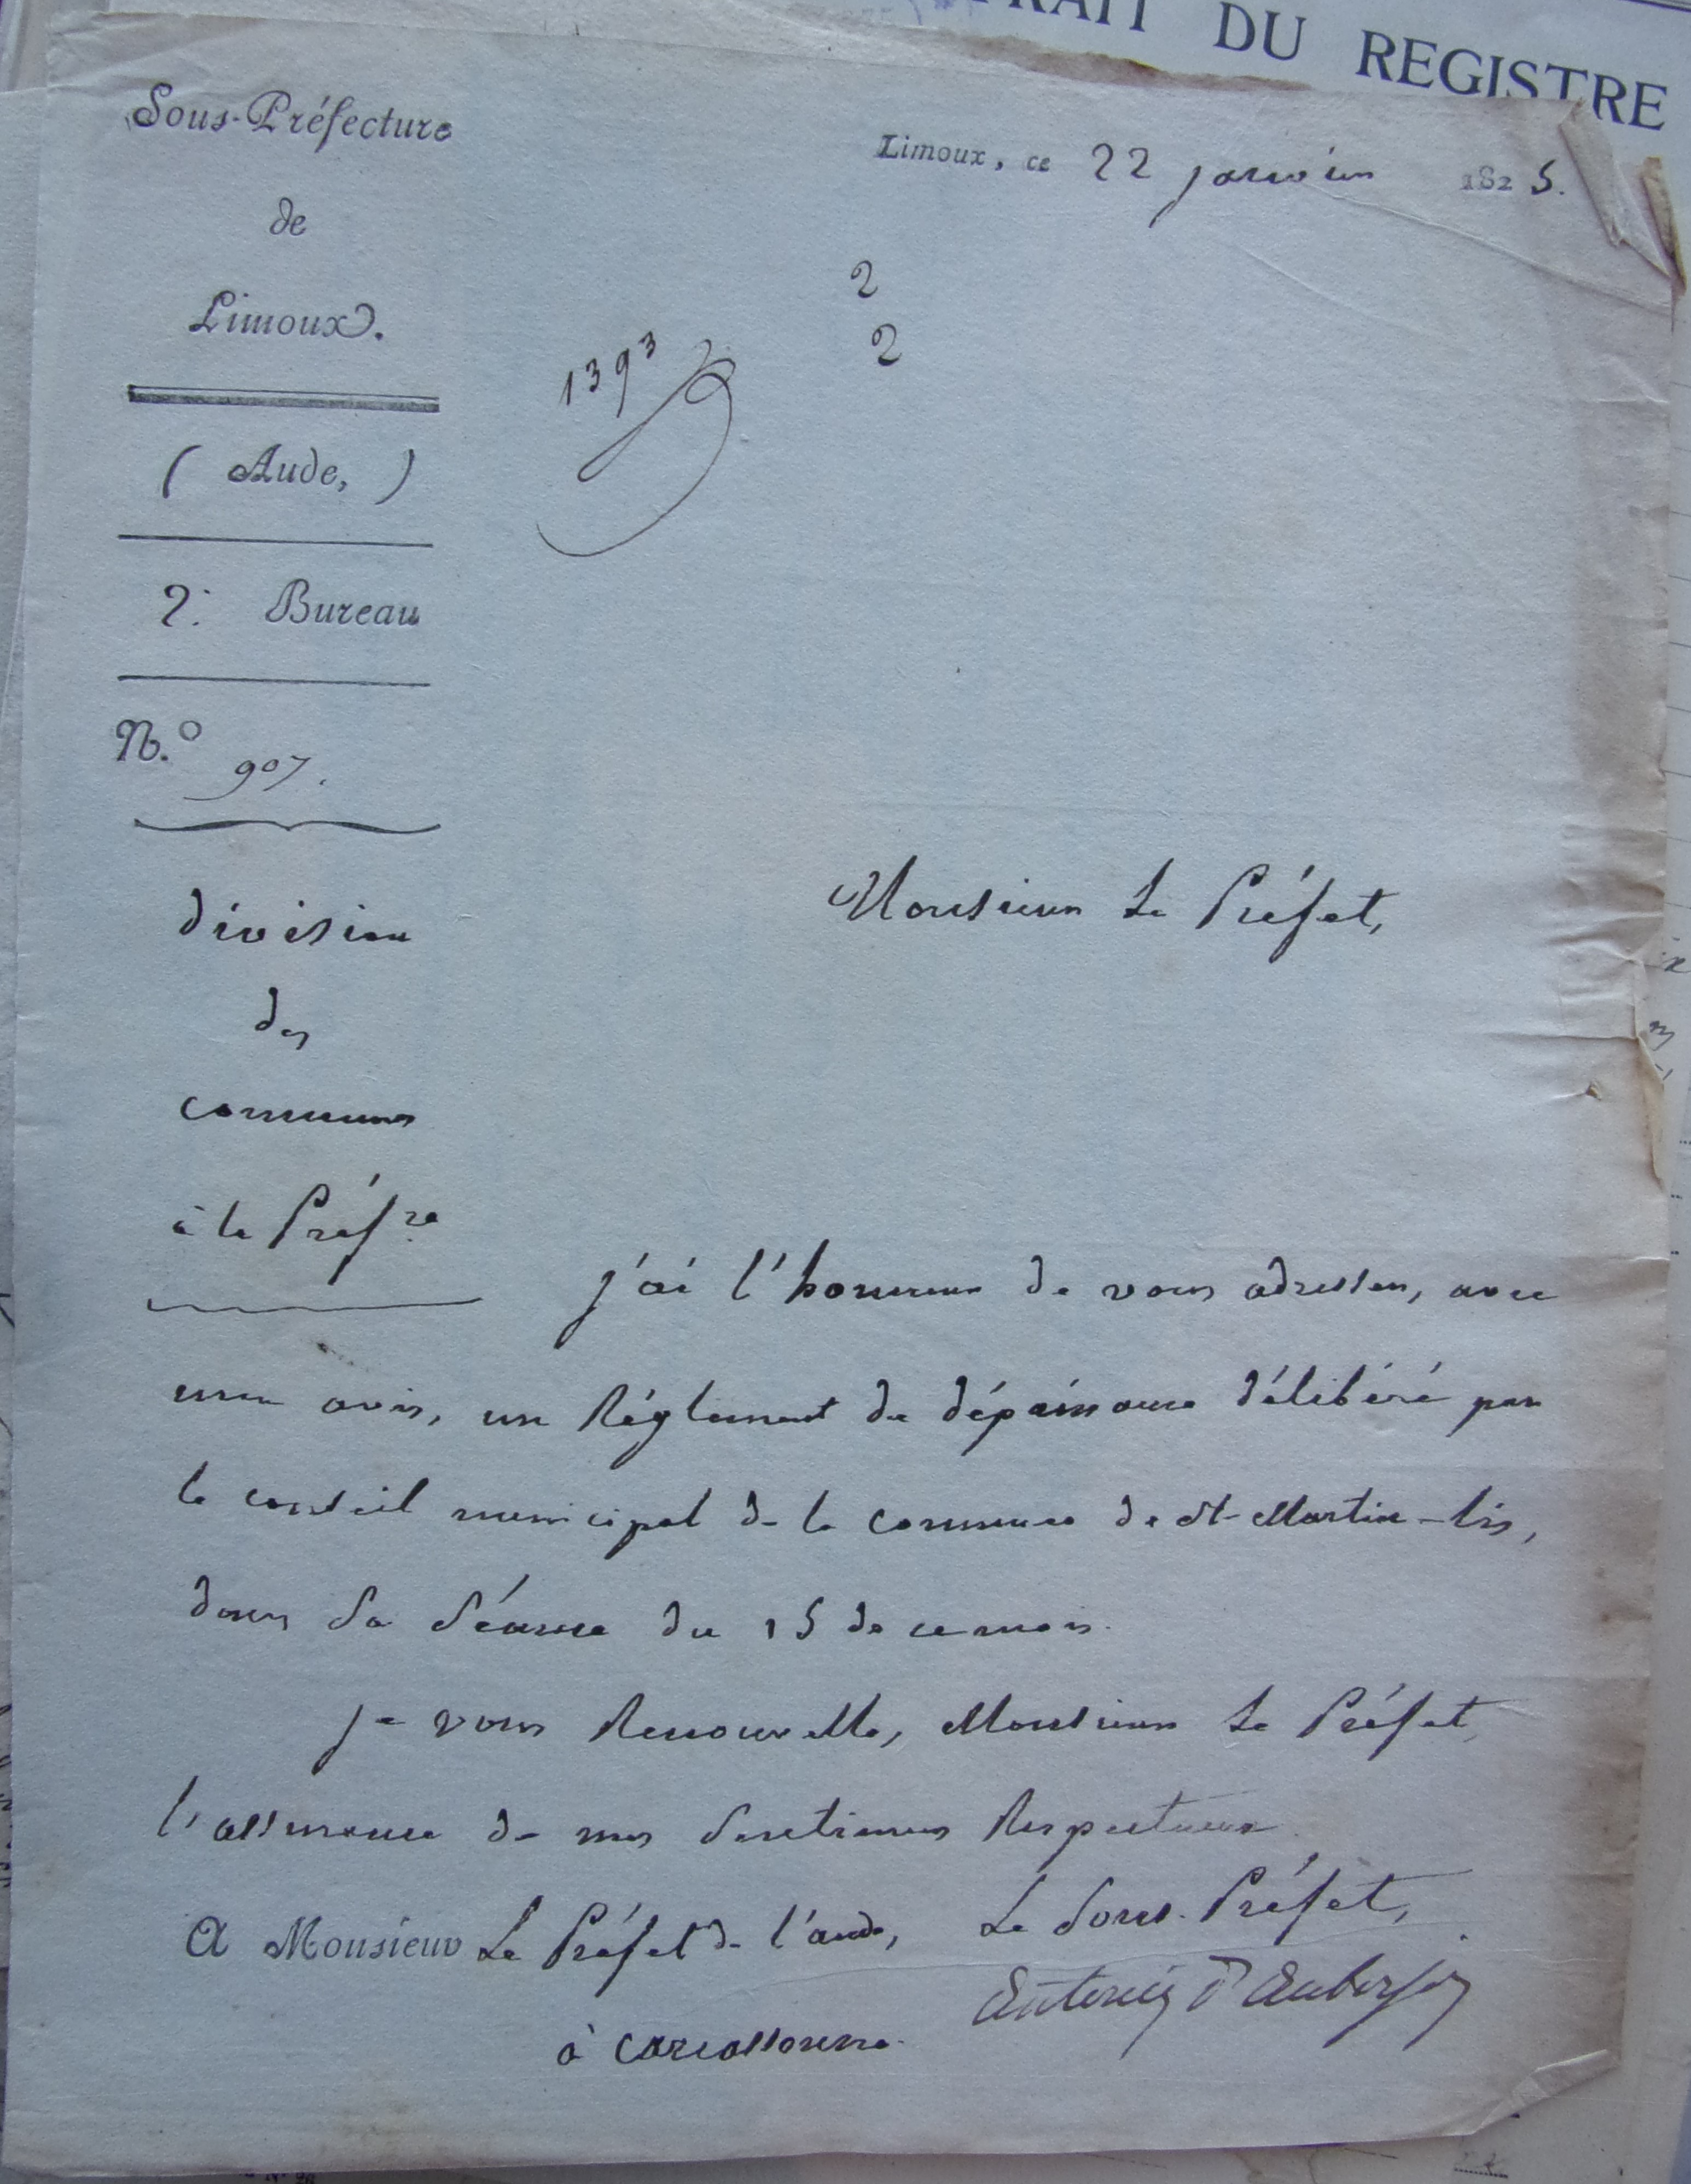 TRAIT DU REGISTRE
Sous-Préfecture
de
Limoux.
( Aude, )
2e. Bureau
N.° 907.
division
des
communes
à la Préfre
Limoux, ce 22 janvier 1825.
2
2
1393
Monsieur Le Préfet,
j'ai l'honneur de vous adresser, avec
mon avis, un Réglement de dépaissance délibéré par
le conseil municipal de la commune de St-Martin-lis,
dans sa séance du 15 de ce mois.
je vous Renouvelle, Monsieur Le Préfet,
l'assurance de mes sentimens Respectueux.
Le Sous-Préfet,
A Monsieur Le Préfet de l'aude,
à Carcassonne.